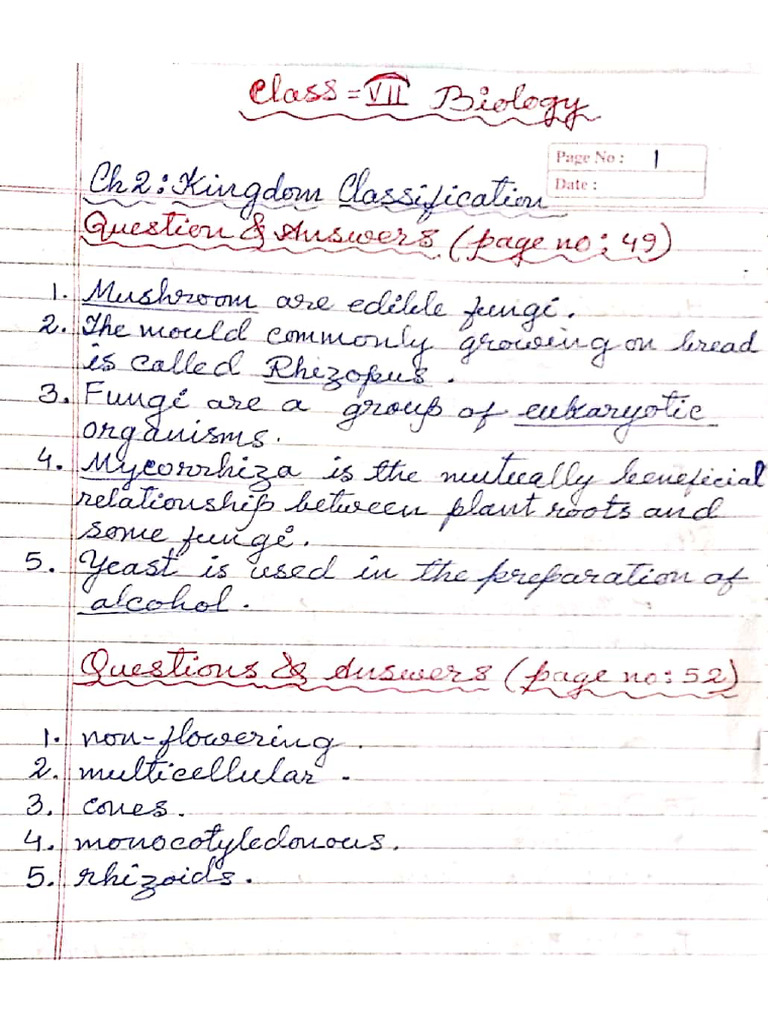 Class = VII Biology
Page No : 1
Date :
Ch 2 : Kingdom Classification
Question & Answers (page no: 49)
1. Mushroom are edible fungi.
2. The mould commonly growing on bread
is called Rhizopus.
3. Fungi are a group of eukaryotic
organisms.
4. Mycorrhiza is the mutually beneficial
relationship between plant roots and
some fungi.
5. Yeast is used in the preparation of
alcohol.
Questions & Answers (page no: 52)
1. non-flowering.
2. multicellular.
3. cones.
4. monocotyledonous.
5. rhizoids.